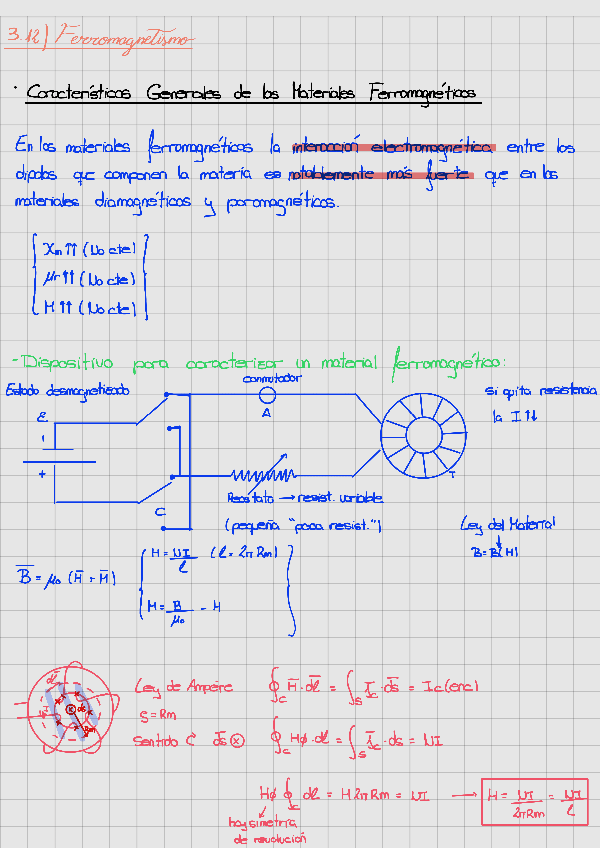 3.12) Ferromagnetismo
· Características Generales de los Materiales Ferromagnéticos
En los materiales ferromagnéticos la interacción electromagnética entre los
dipolos que componen la materia es notablemente más fuerte que en los
materiales diamagnéticos y paramagnéticos.
χm ↑↑ (No cte)
μr ↑↑ (No cte)
M ↑↑ (No cte)
- Dispositivo para caracterizar un material ferromagnético:
Estado desmagnetizado
conmutador
si quita resistencia
la I ↑↓
E
A
T
Reostato → resist. variable
C
(pequeña "poca resist.")
Ley del Material
B = B(H)
B̅ = μ₀ (H̅ + M̅)
H = NI/l (l = 2π Rm)
M = B/μ₀ - H
Ley de Ampère ∮c H̅ · dl̅ = ∫s J̅c · ds̅ = Ic (enc)
S = Rm
Sentido C ds̅ ⊗ ∮c Hϕ · dl = ∫s J̅c · ds = NI
Hϕ ∮c dl = H 2π Rm = NI → H = NI/2πRm = NI/l
hay simetría
de revolución